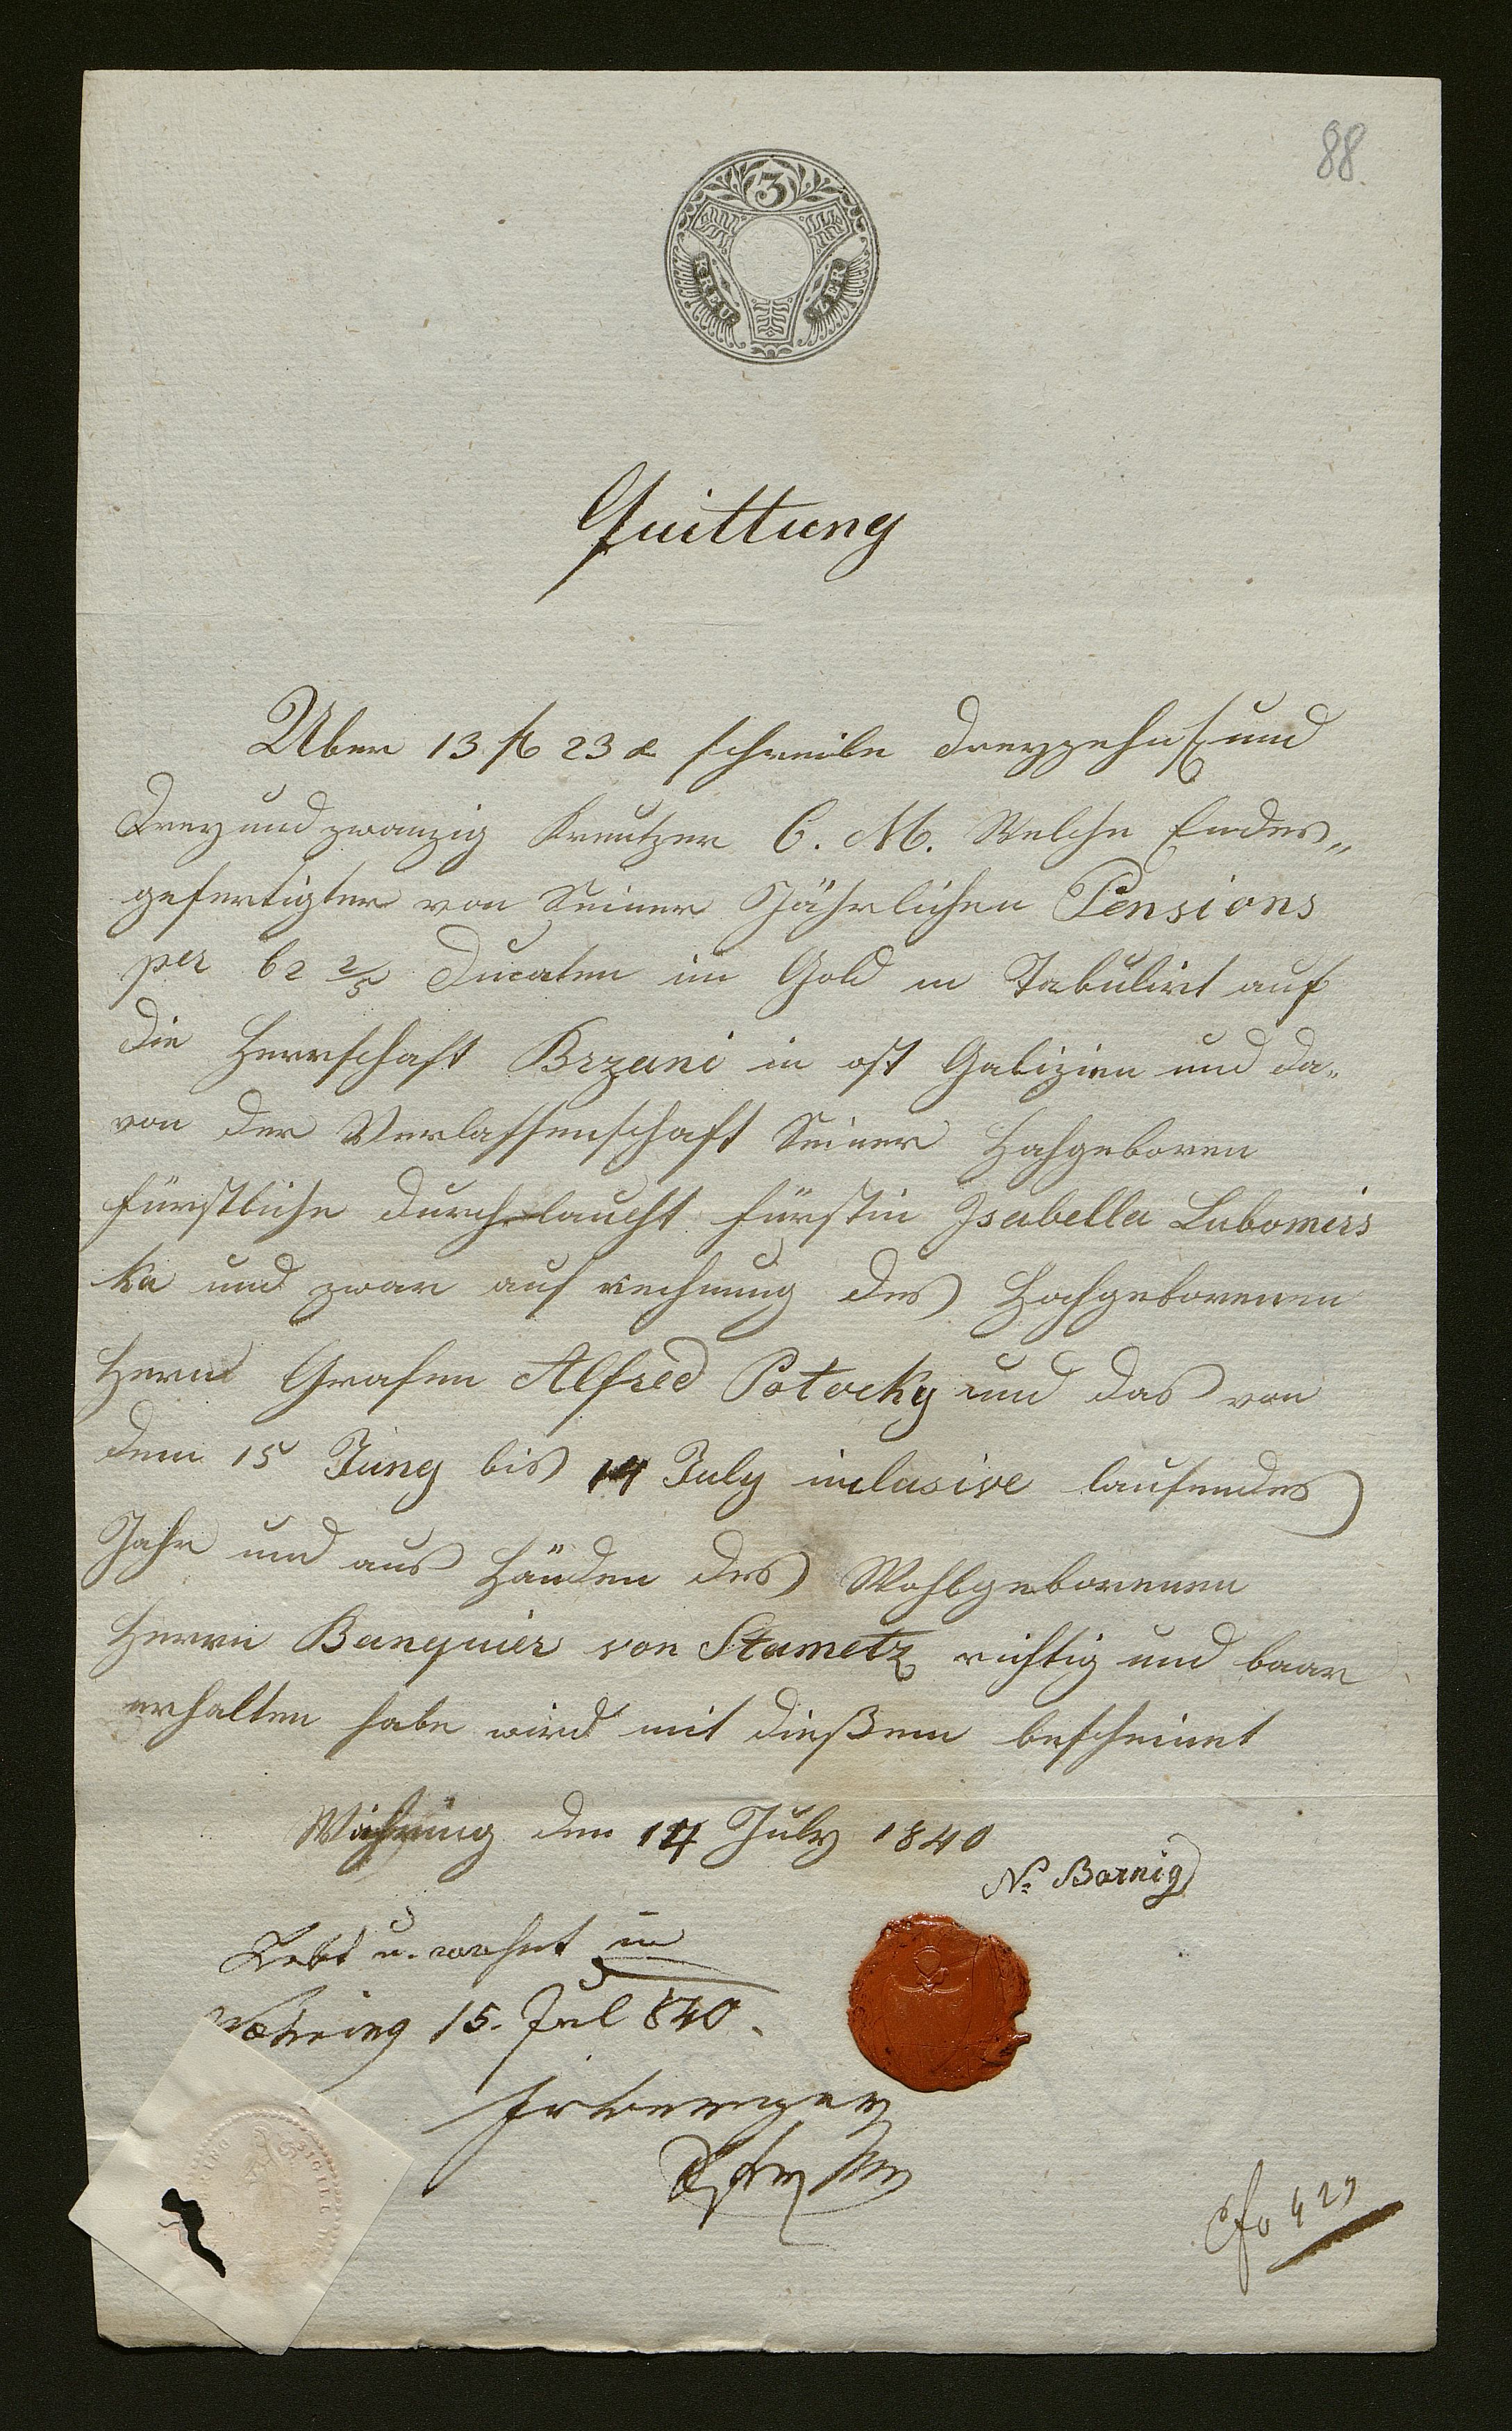 88.
3
KREU ZER
Quittung
Uber 13 f 23 x schreibe dreyzehn f und
dreyundzwanzig Kreutzer C. M. Welche Endes„
gefertigter von Seiner Jährlichen Pensions
per 62 2/5 Ducaten im Gold in Tabulirt auf
die Herrschaft Brzani in ost Galizien und da„
von der Verlassenschaft Seiner Hochgeboren
fürstliche durchlaucht fürstin Isabella Lubomirs
ka und zwar auf rechnung des Hochgeborenen
Herrn Grafen Alfred Potocky und das von
dem 15 Juny bis 14 July inclusive laufendes
Jahr und aus Händen des Wohlgeborenen
Herrn Banquier von Stametz richtig und baar
erhalten habe wird mit dießem bescheinet
Währing den 14 July 1840
N: Barnig
Lebt u. wohnt in
Währing 15. Jul 840.
SIGIL
Cfo 429